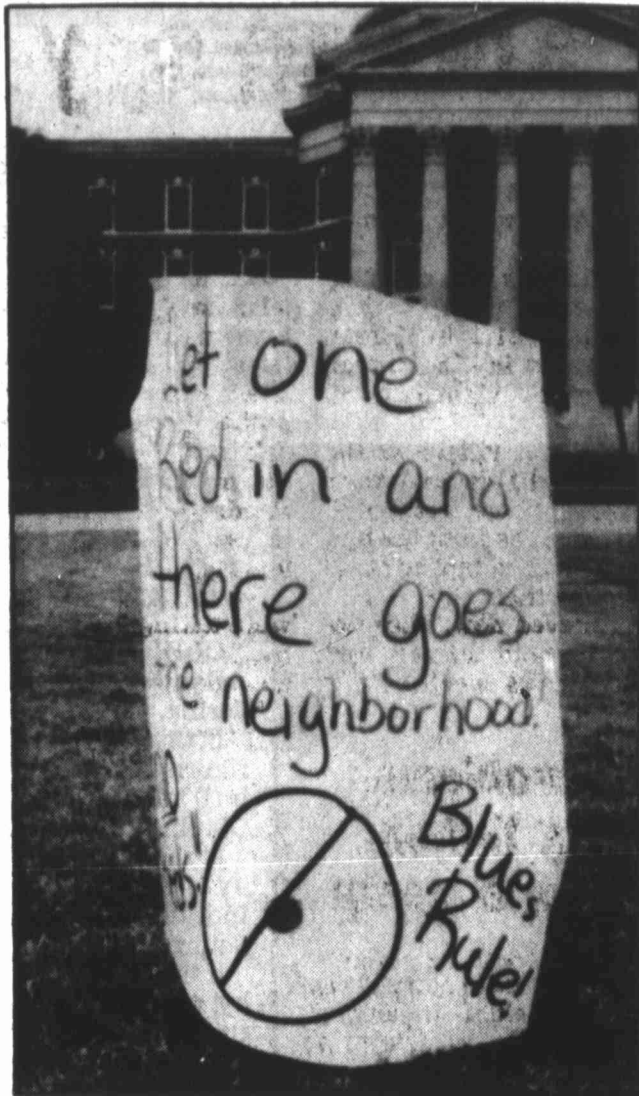 Let one
Red in and
there goes
neighborhood!
Blues
Rule!